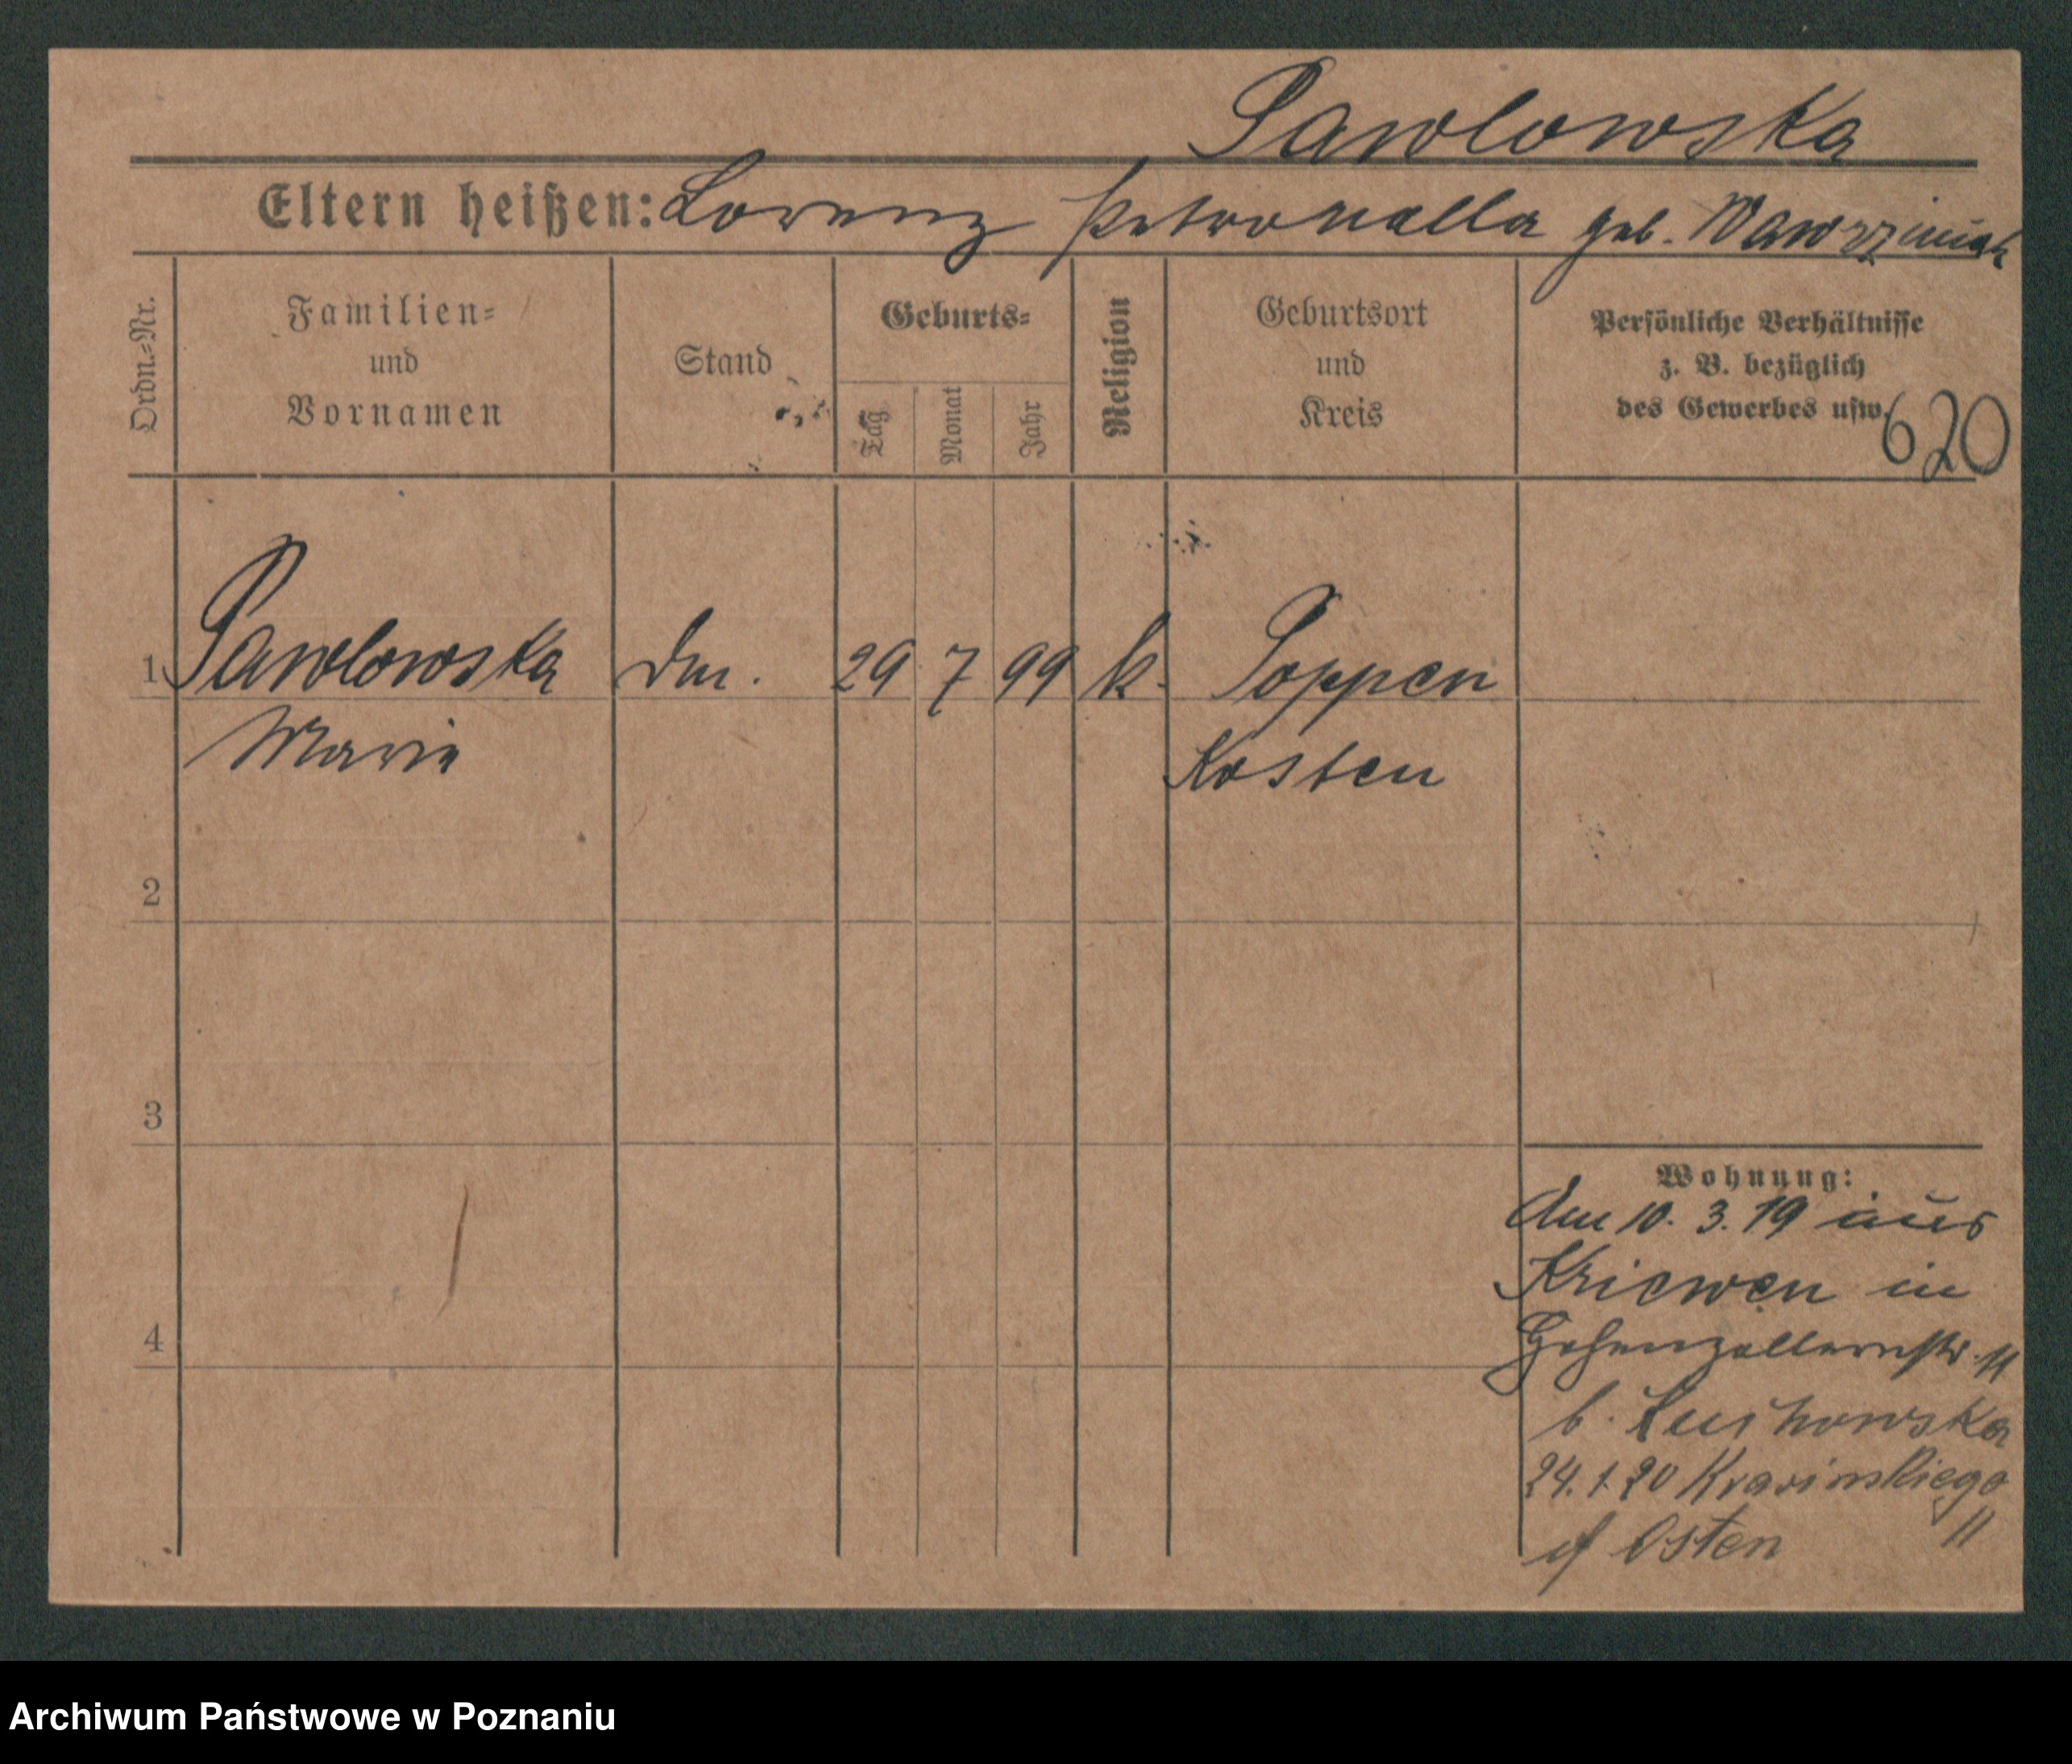 Pawlowska
Eltern heißen: Lorenz Petronella geb. Wawrziniak
Ordn.-Nr.
Familien-
und
Vornamen
Stand
Geburts-
Tag
Monat
Jahr
Religion
Geburtsort
und
Kreis
Persönliche Verhältnisse
z. B. bezüglich
des Gewerbes usw.
620
1 Pawlowska Dm. 29 7 99 k. Poppen
Marie Kosten
2
3
4
Wohnung:
Am 10. 3. 19 aus
Kriewen in
Hohenzollernstr. 11
b.
24.1.20 Krasinskiego
11
Osten
Archiwum Państwowe w Poznaniu